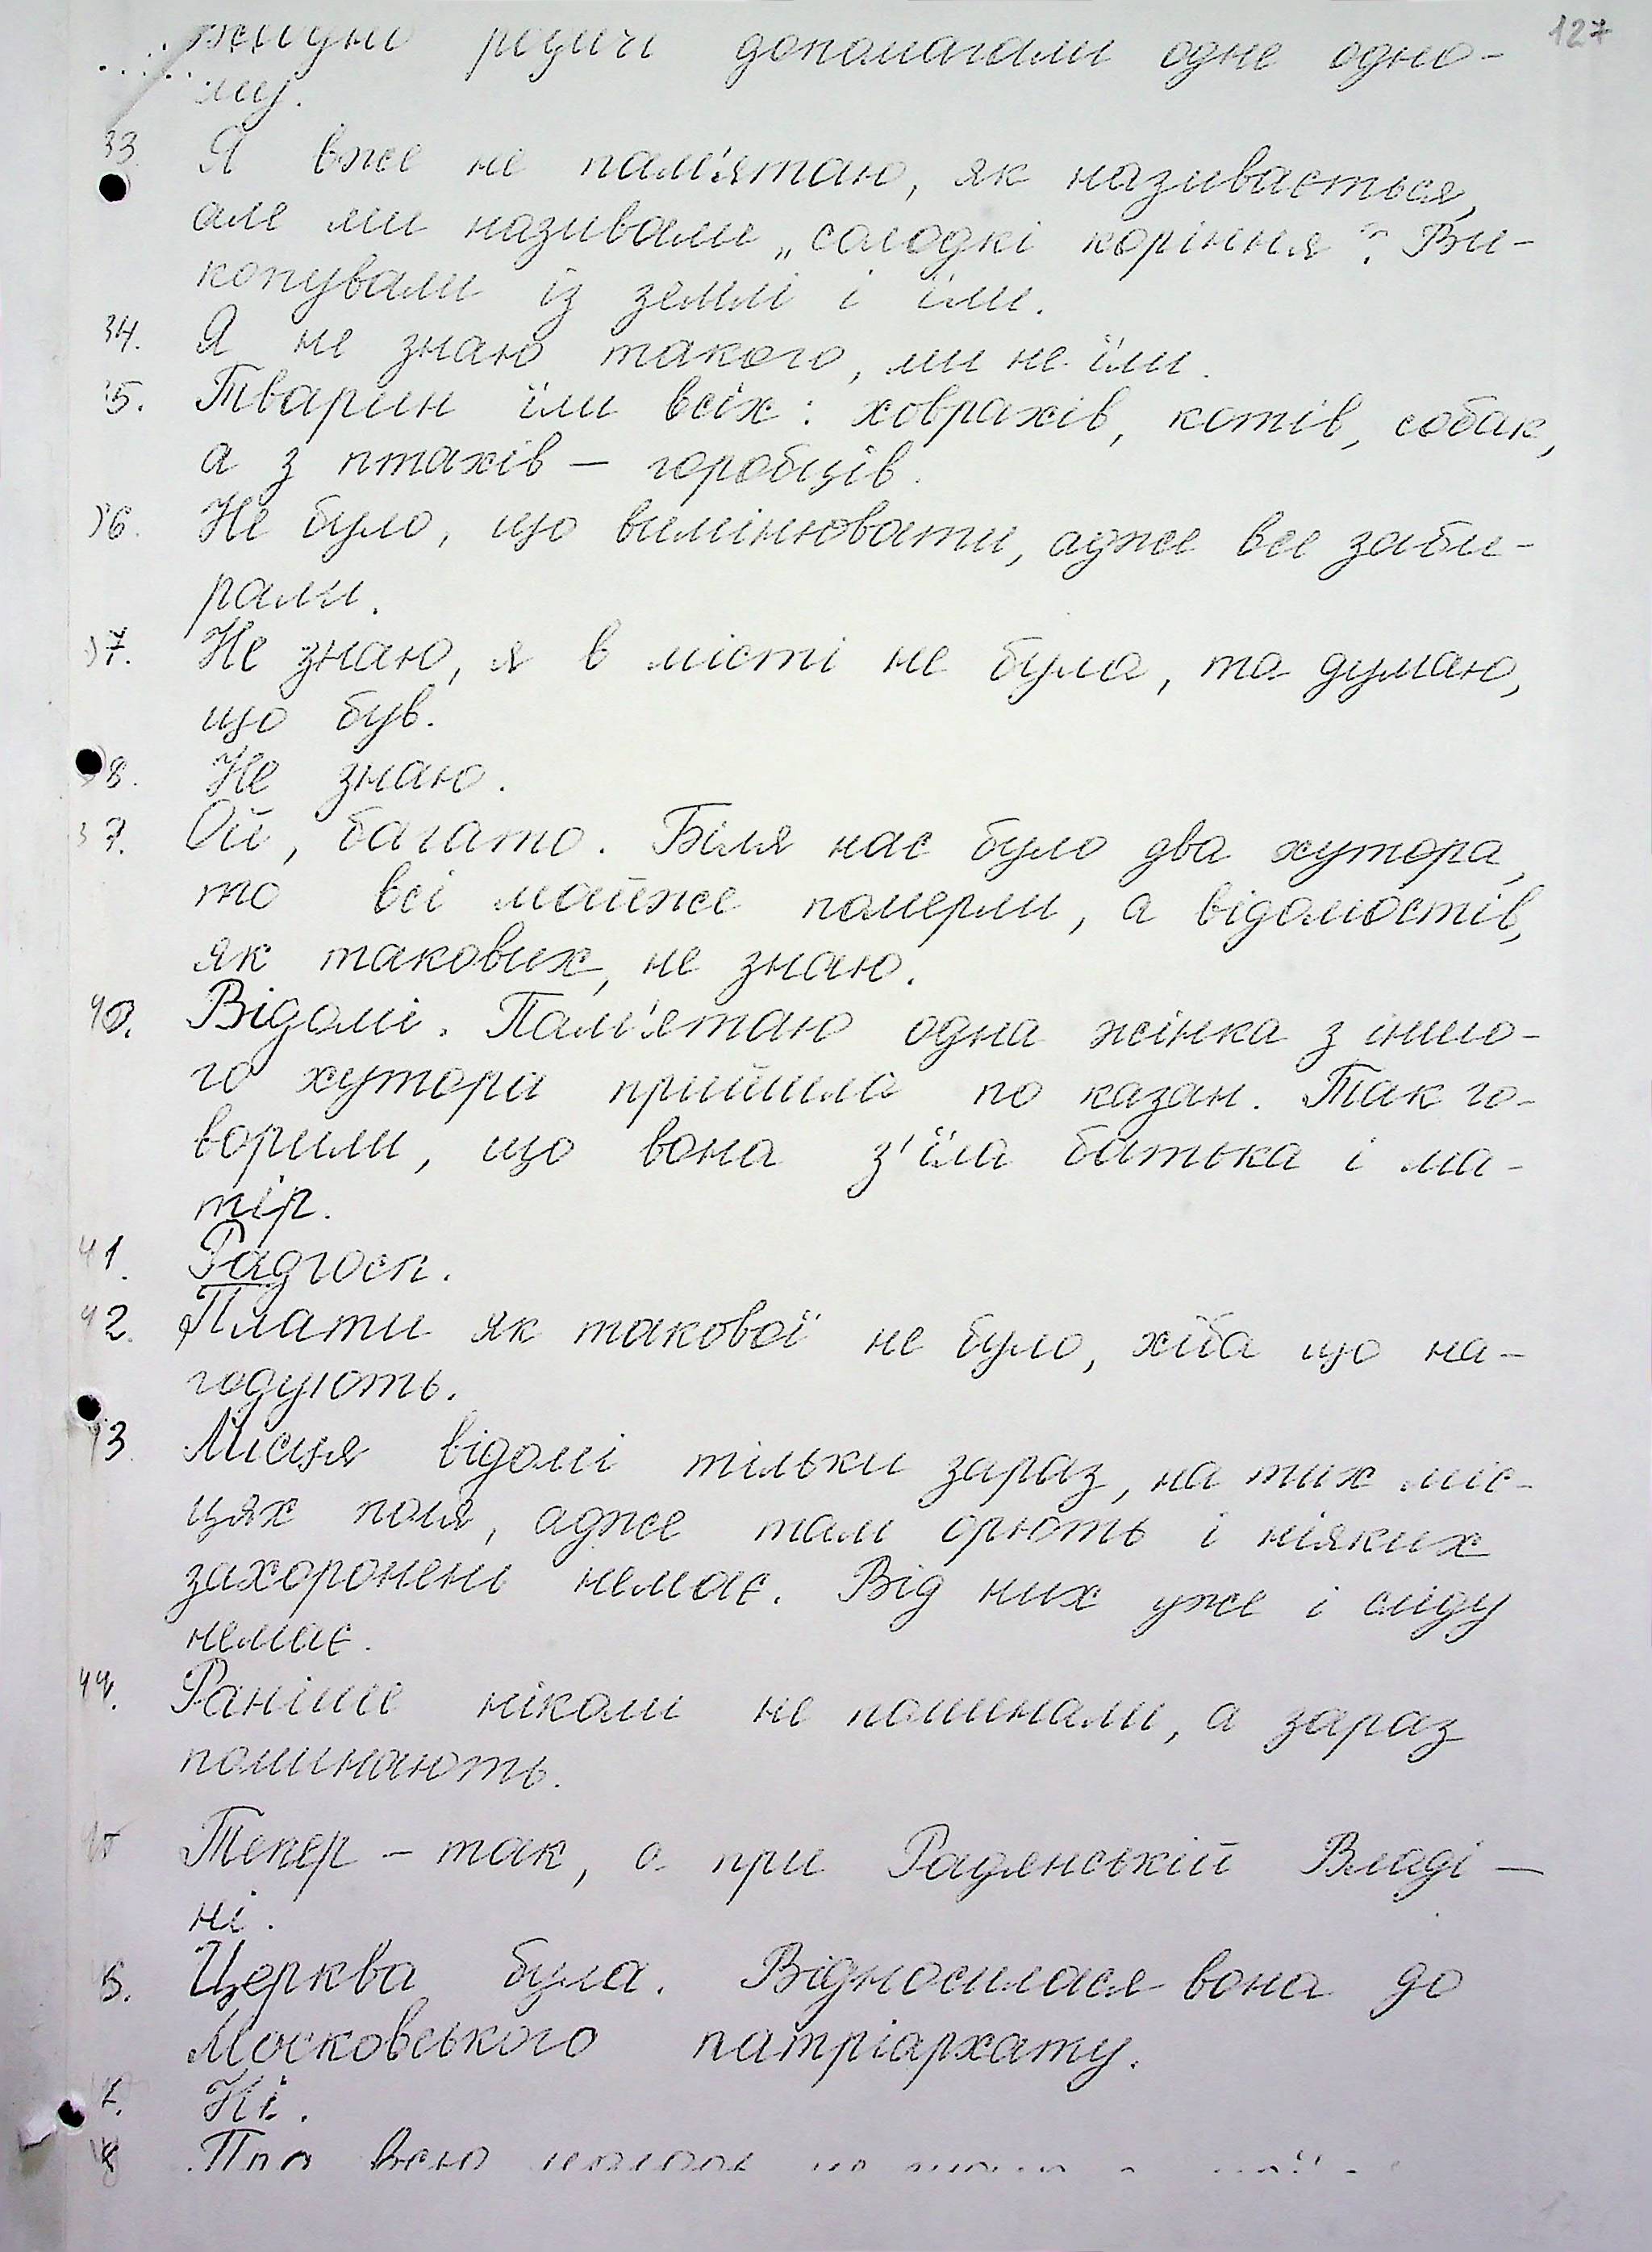 127
родичі допомагали одне одно-
му.
33. Я вже не пам'ятаю, як називається,
але ми називали „солодкі коріння". Ви-
копували із землі і їли.
34. Я не знаю такого, ми не їли.
35. Тварин їли всіх: ховрахів, котів, собак,
а з птахів — горобців.
36. Не було, що вимінювати, адже все заби-
рали.
37. Не знаю, я в місті не була, та думаю,
що був.
38. Не знаю.
39. Ой, багато. Біля нас було два хутора,
то всі майже померли, а відомостів,
як такових, не знаю.
40. Відомі. Пам'ятаю одна жінка з іншо-
го хутора прийшла по казан. Так го-
ворили, що вона з'їла батька і ма-
тір.
41. Радгосп.
42. Плати як такової не було, хіба що на-
годують.
43. Мисця відомі тільки зараз, на тих міс-
цях поля, адже там орють і ніяких
захоронень немає. Від них уже і сліду
немає.
44. Раніше ніколи не поминали, а зараз
поминають.
45 Тепер – так, а при Радянській Владі —
ні.
6. Церква була. Відносилася вона до
Московського патріархату.
7. Ні.
48 Про всю